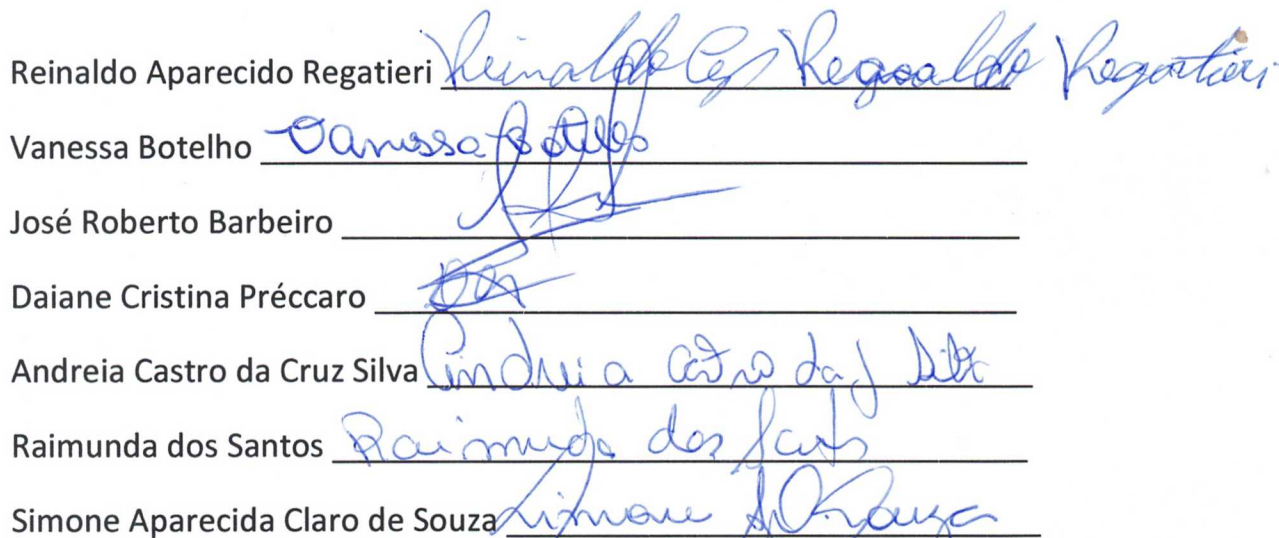 Reinaldo Aparecido Regatieri Reinaldo Regatieri
Vanessa Botelho Vanessa Botelho
José Roberto Barbeiro
Daiane Cristina Préccaro
Andreia Castro da Cruz Silva Andreia Castro da Silva
Raimunda dos Santos Raimunda dos Santos
Simone Aparecida Claro de Souza Simone Souza